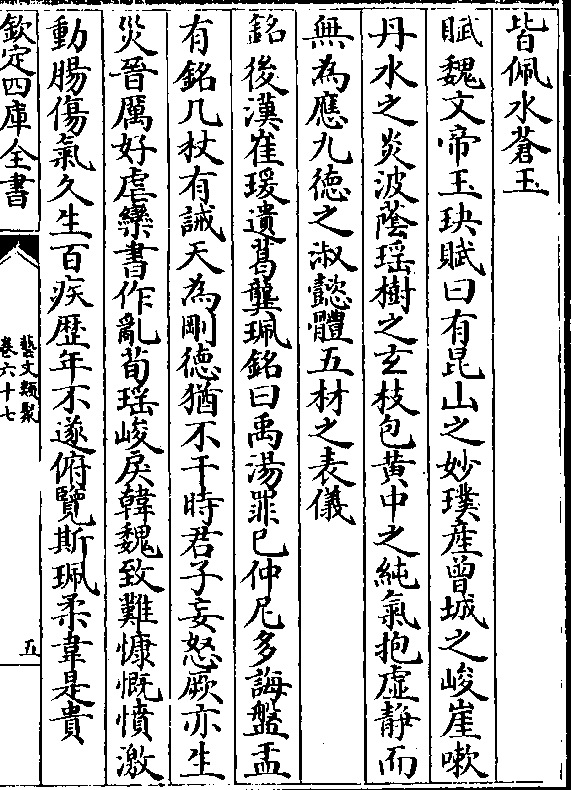 皆佩水蒼玉
賦魏文帝玉玦賦曰有昆山之妙璞産曾城之峻崖嗽
丹水之炎波蔭瑶樹之玄枝包黄中之純氣抱虚静而
無為應九德之淑懿體五材之表儀
銘後漢崔瑗遺葛龔珮銘曰禹湯罪已仲尼多誨盤盂
有銘几杖有誡天為剛德猶不干時君子妄怒厥亦生
災晉厲好虐欒書作亂荀瑶峻戾韓魏致難慷慨憤激
動腸傷氣久生百疾歴年不遂俯覽斯珮柔韋是貴
欽定四庫全書
藝文類聚
卷六十七
五